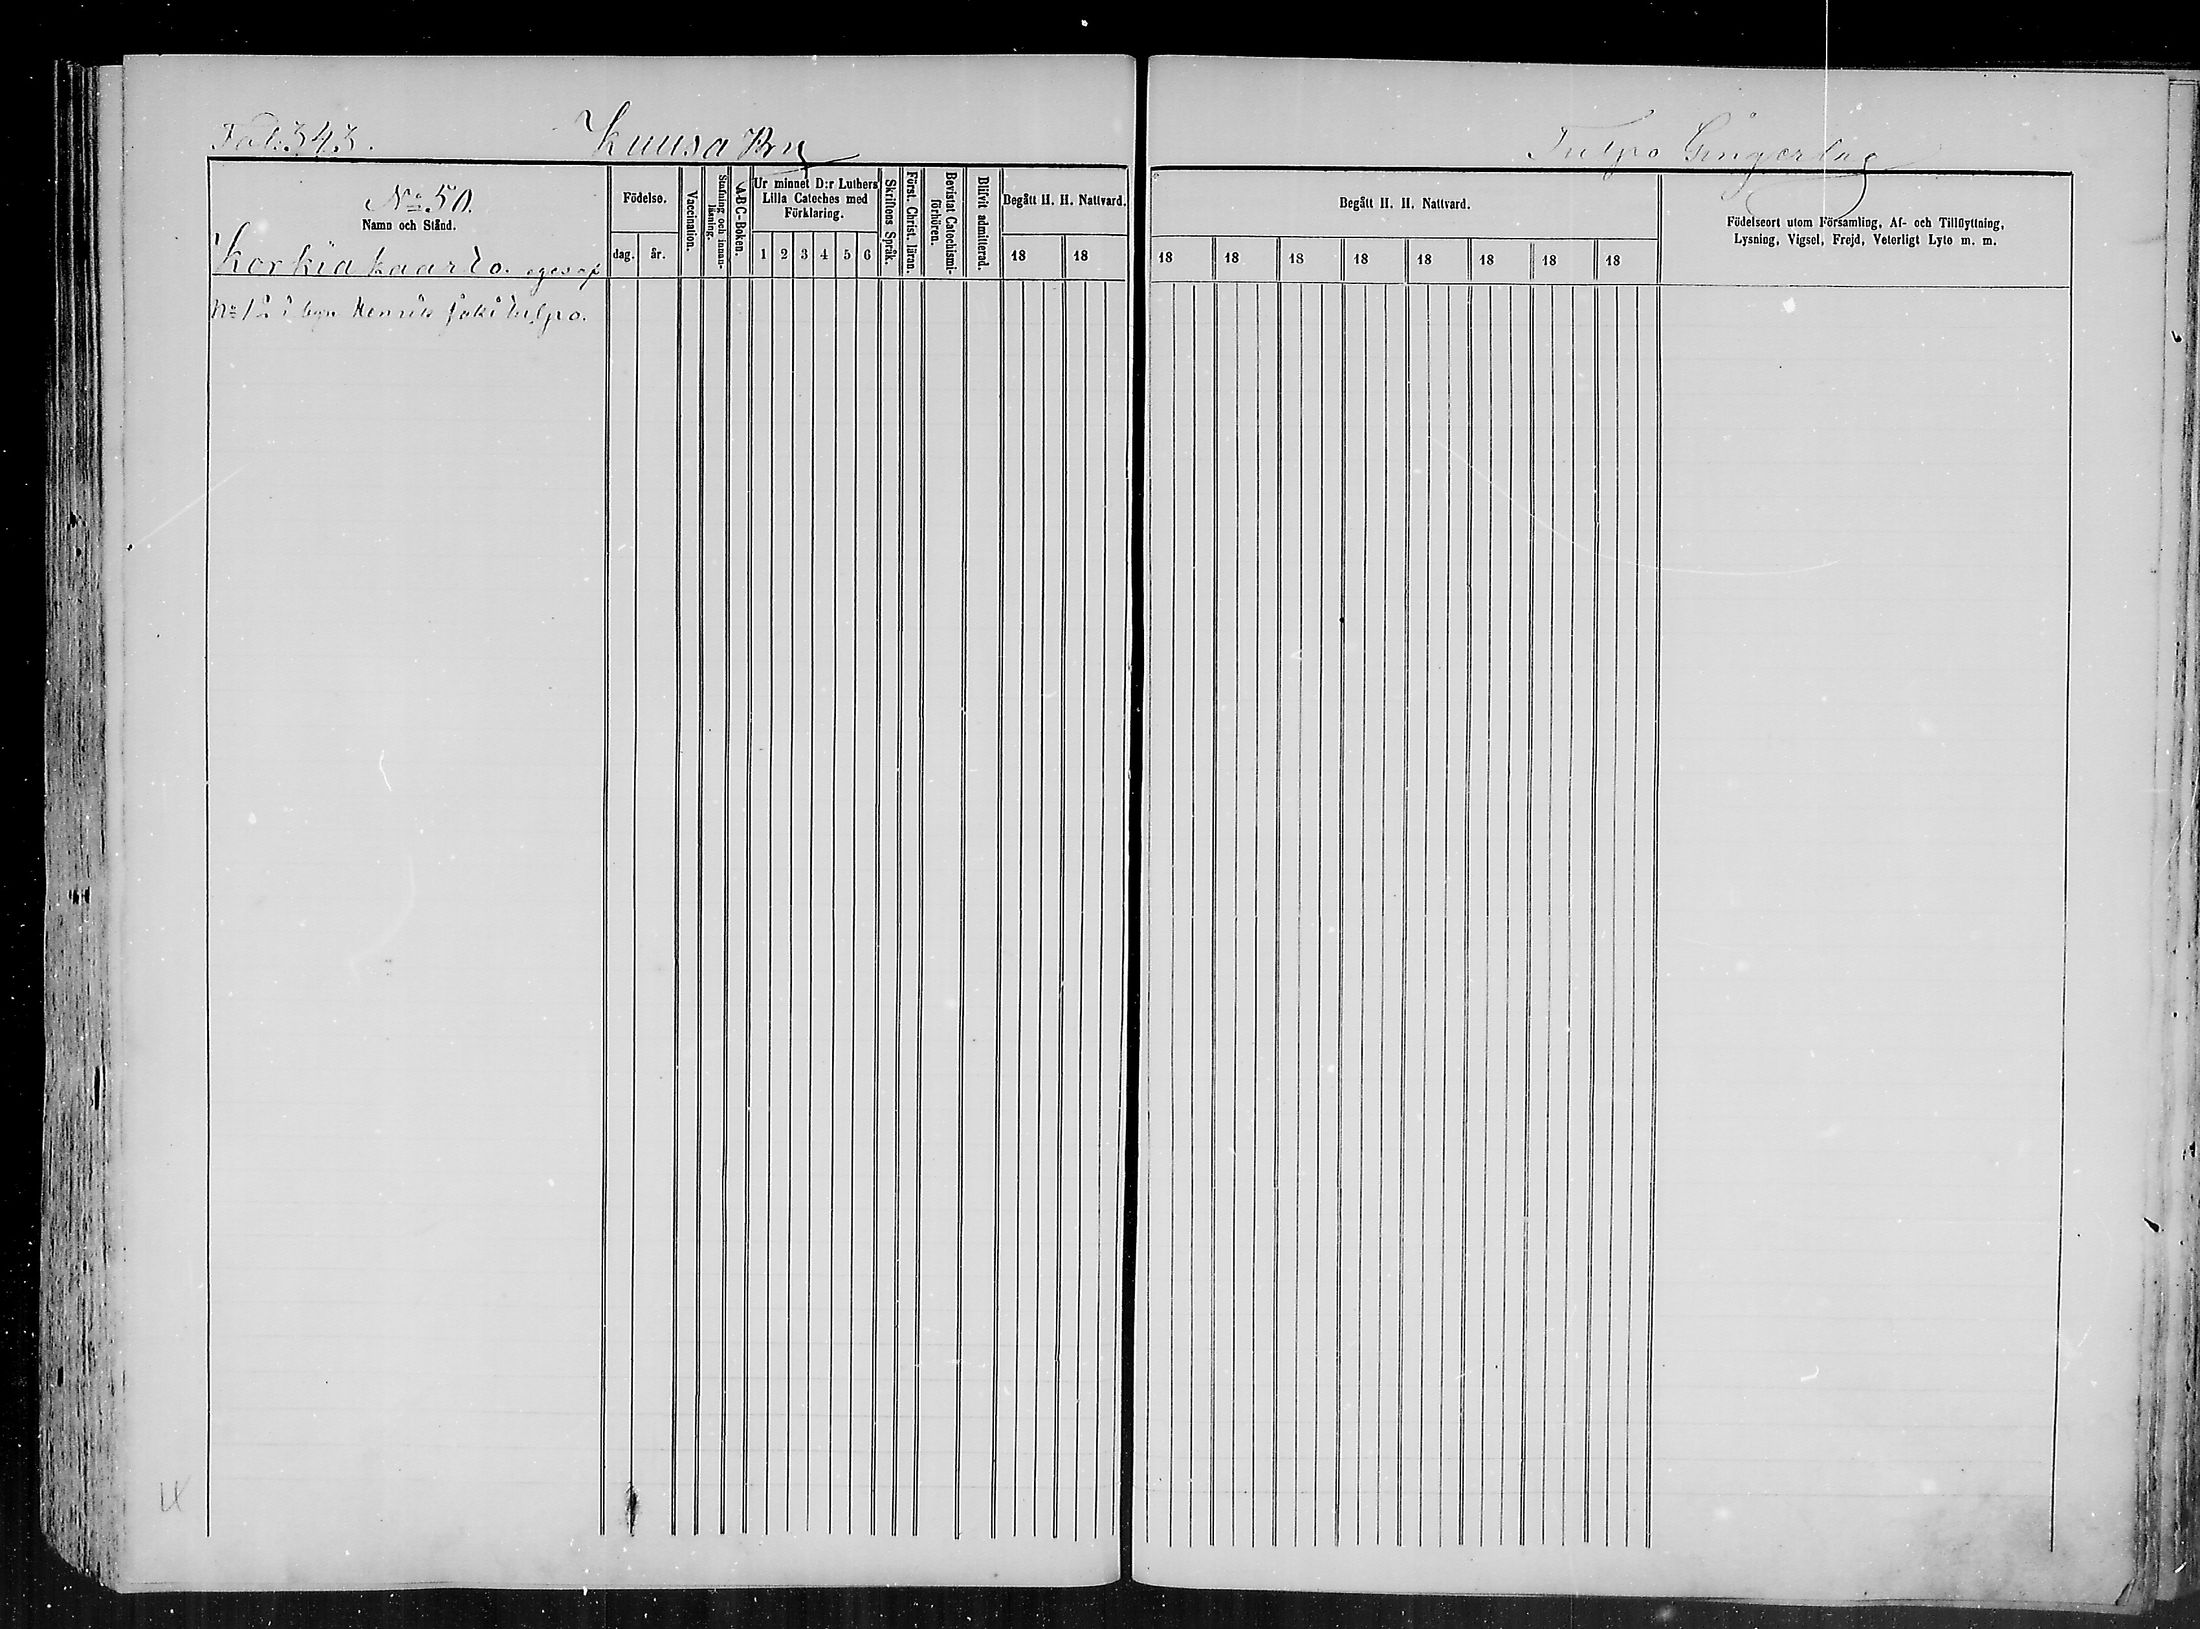 Fol: 343.
Kuusa By
Tulpo Gingerlag
No 50.
Namn och Stånd.
Korkiakaarto. eges af
No 12 i byn Henrik Jokitulpo.
Födelse.
dag.
år.
Vaccination.
Stafning och innan-
läsning.
A-B-C-Boken.
Ur minnet D:r Luthers
Lilla Cateches med
Förklaring.
1 2 3 4 5 6
Skriftens Språk.
Först. Christ. läran.
Bevistat Catechismi-
förhören.
Blifvit admitterad.
Begått H. H. Nattvard.
18 18
Begått H. H. Nattvard.
18 18 18 18 18 18 18 18
Födelseort utom Församling, Af- och Tillflyttning,
Lysning, Vigsel, Frejd, Veterligt Lyte m. m.